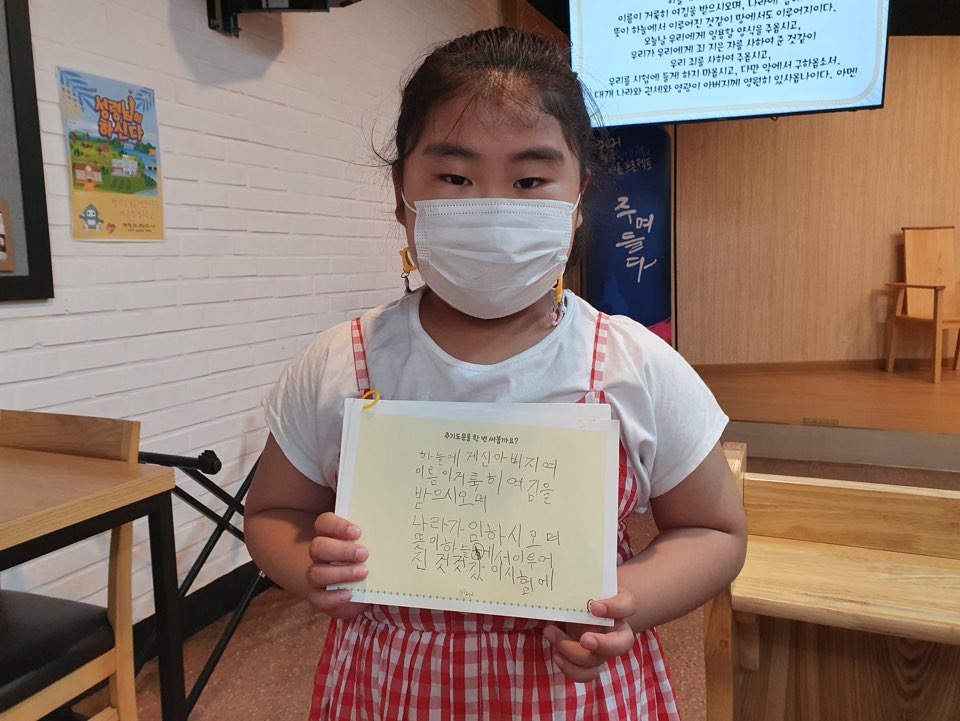 이름이 거룩히 여김을 받으시오며, 나라에
뜻이 하늘에서 이루어진 것같이 땅에서도 이루어지이다.
오늘날 우리에게 일용할 양식을 주옵시고,
우리가 우리에게 죄 지은 자를 사하여 준 것같이
우리 죄를 사하여 주옵시고,
우리를 시험에 들게 하지 마옵시고, 다만 악에서 구하옵소서.
대개 나라와 권세와 영광이 아버지께 영원히 있사옵나이다. 아멘!
성령님이
하신다
프로젝트
주며들다
주기도문을 한 번 써볼까요?
하늘에 계신아버지여
이름이거룩히 여김을
받으시오며
나라가 임하시오며
뜻이하늘에서이루어
진 것것갔 이시험에